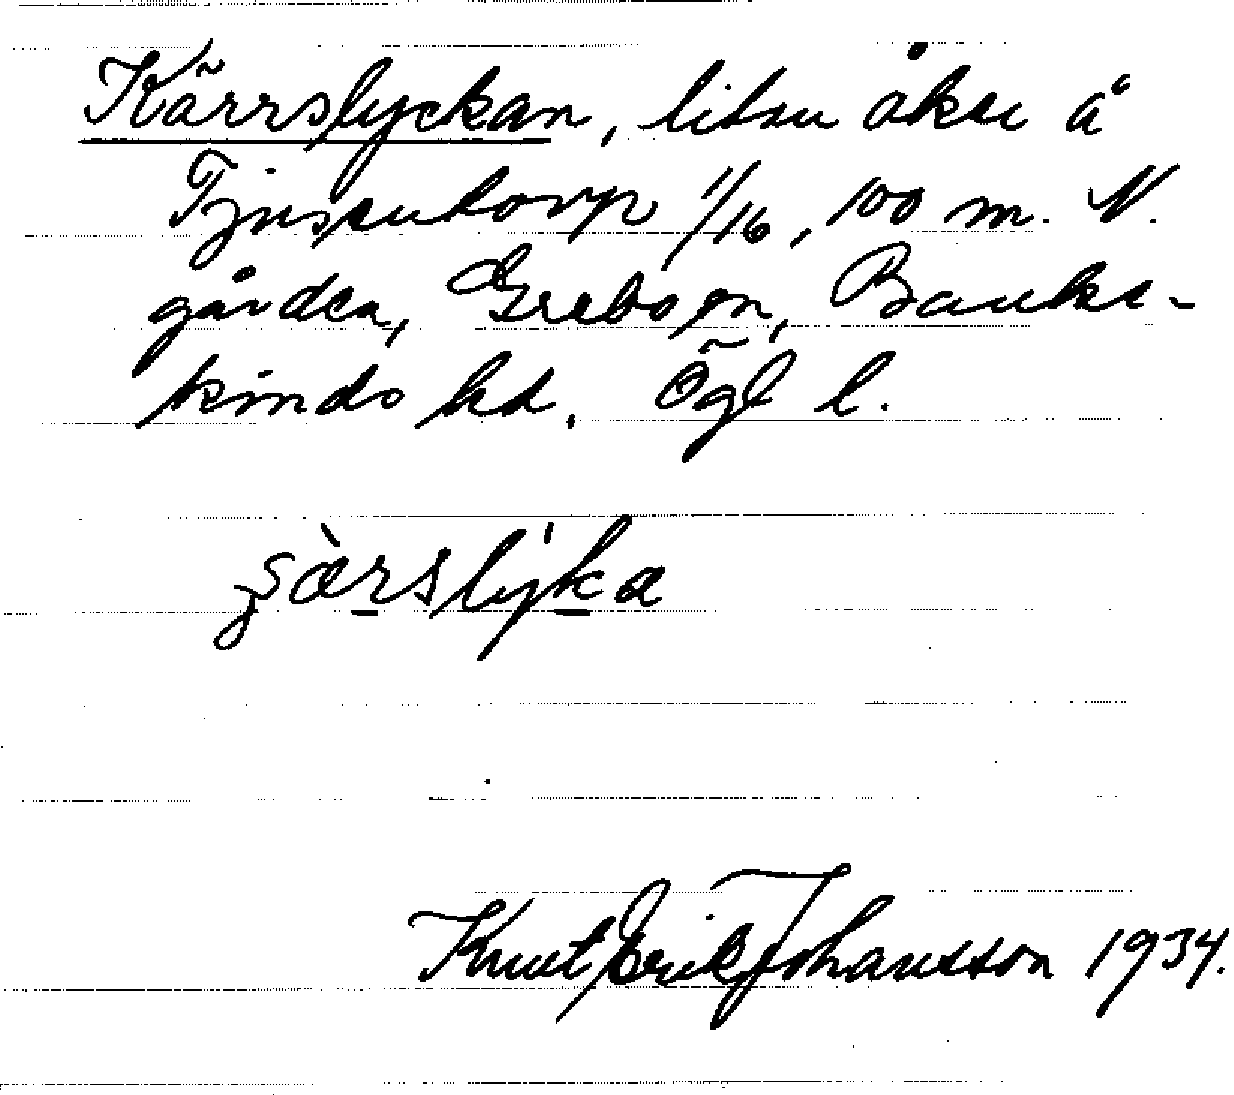 Kärrslyckan, liten åker å
Tjussentorp 1/16, 100 m. N.
gården, Grebo sn, Banke-
kinds hd. Ögl l.
Knut Erik Johansson 1934.